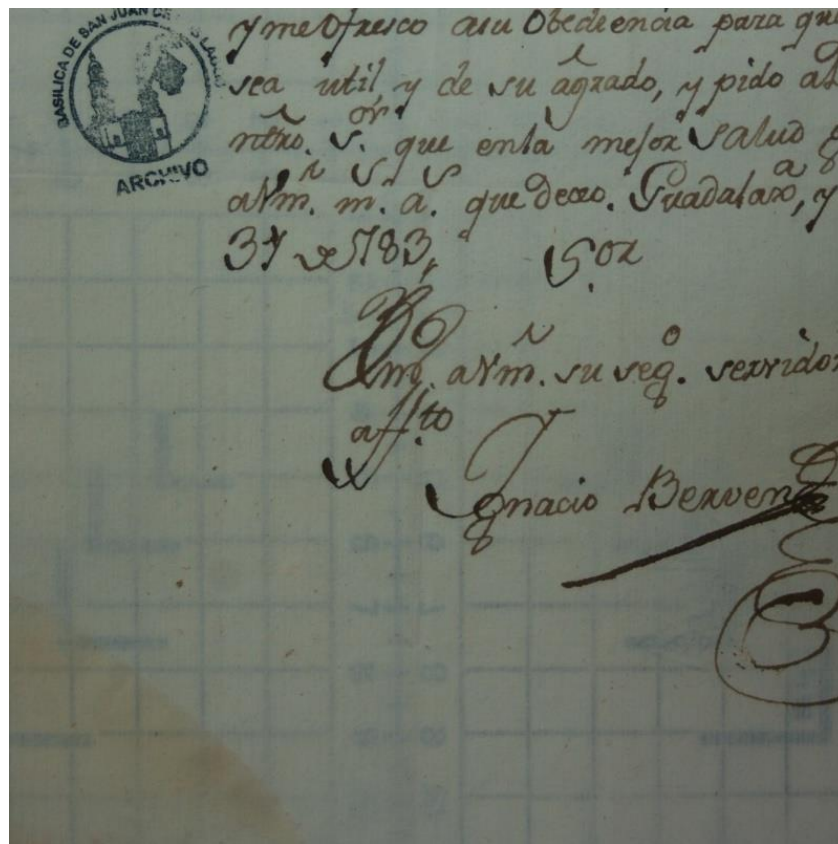 BASILICA DE SAN JUAN DE LOS LAGOS
ARCHIVO
y me ofresco asu Obediencia para qu
sea util, y de su agrado, y pido a
ntro. Sor. que enla mejor Salud
aVm. m. a. que deceo. Guadalaxa, y
31 de 783,
Sor
aVm. su seg. servidor
affto
Ignacio